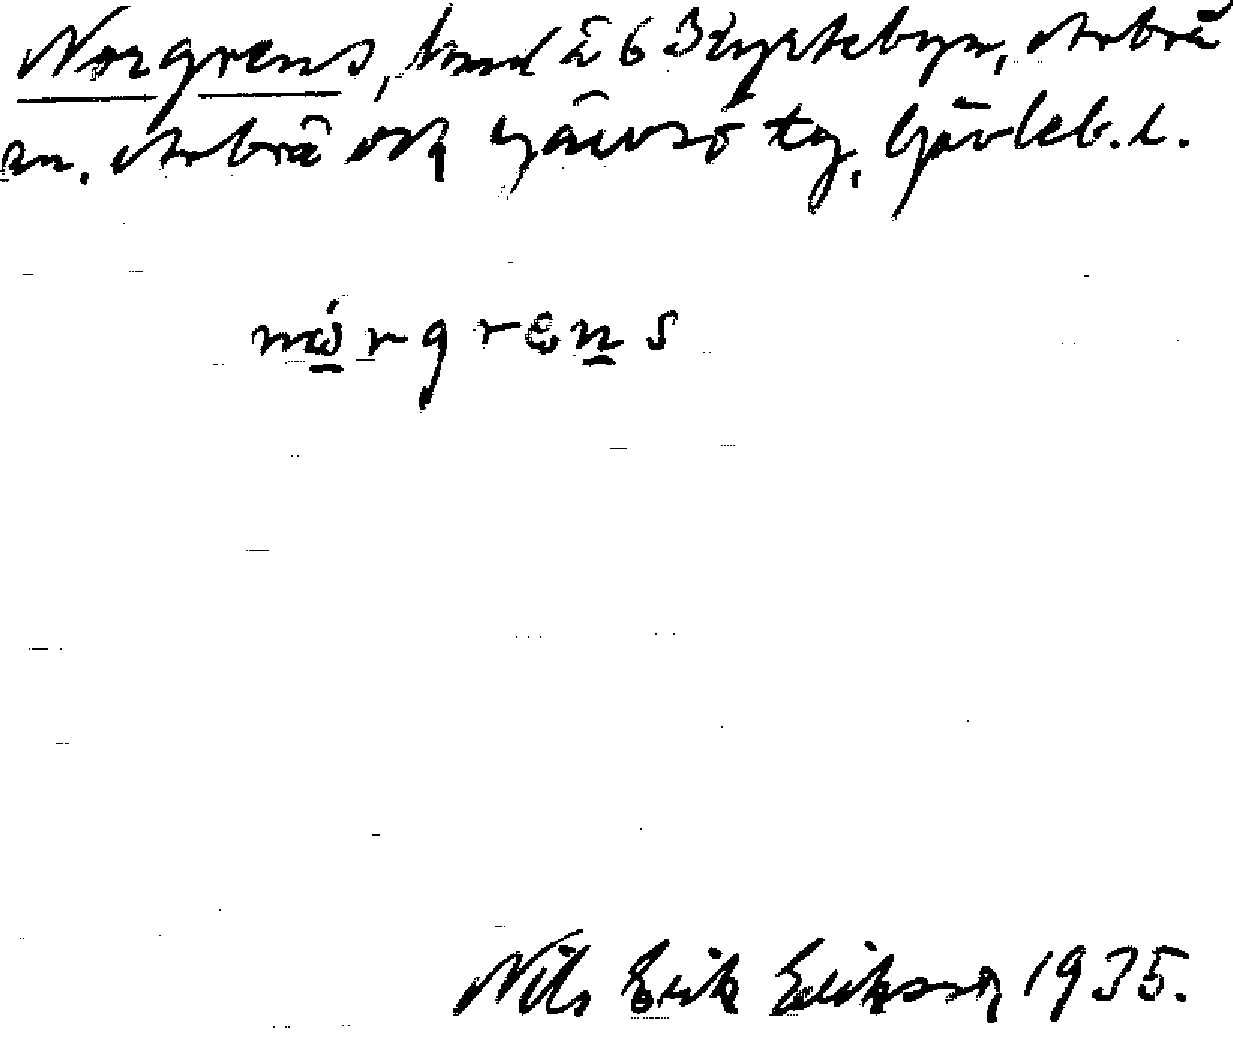 Norgrens, hmd å 6 Zzyrkebyn, Arbrå
sn. Arbrå och Järvsö tg, Gävleb. l.
nórgrens
Nils Erik Eriksson 1935.